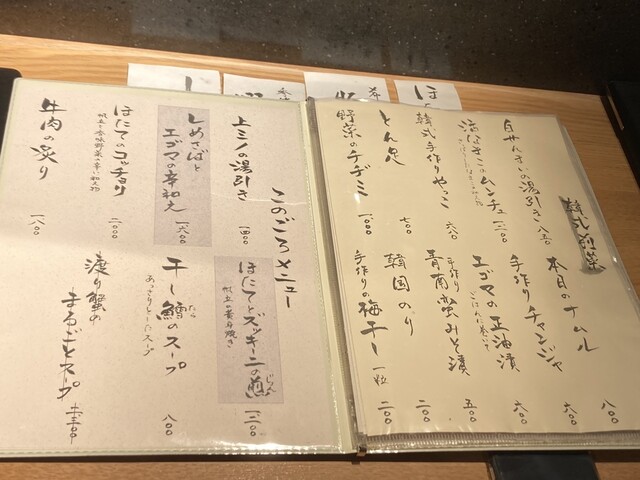 韓式前菜
本日のナムル 八〇〇
白せんまいの湯引き 八五〇
手作りチャンジャ 六〇〇
活なまこのムンチュ 一二〇〇
エゴマの正油漬 五〇〇
ごはんに巻いて
韓式手作りやっこ 六八〇
手作り青南蛮みそ漬 二〇〇
とん足 七〇〇
韓国のり 二〇〇
野菜のチヂミ 一〇〇〇
手作り梅干し 一粒 二〇〇
このごろメニュー
上ミノの湯引き 一四〇〇
ほたてとズッキーニの煎 一二〇〇
じょん
帆立の黄身焼き
しめさばとエゴマの辛和え 一六〇〇
干し鱈のスープ 八〇〇
たら
あっさりとしたスープ
ほたてのコッチョリ 二〇〇〇
帆立と香味野菜の辛い和え物
渡り蟹のまるごとスープ
牛肉の炙り 一八〇〇